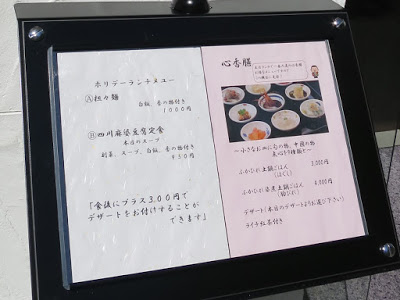 ホリデーランチメニュー
Ⓐ担々麺
白飯、香の物付き
1000円
Ⓑ四川麻婆豆腐定食
本日のスープ
副菜、スープ、白飯、香の物付き
950円
「食後にプラス300円で
デザートをお付けすることが
できます」
心香膳
〜小さなお皿に旬の物、中国の物
点心など
ふかひれ土鍋ごはん
3,000円
ふかひれ姿煮土鍋ごはん
4,000円
デザート(本日のデザートよりお選び下さい)
ライチ紅茶付き